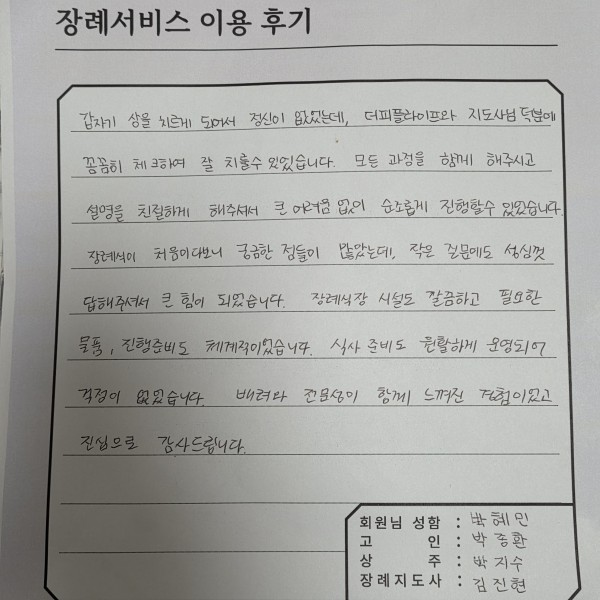 장례서비스 이용 후기
갑자기 상을 치르게 되어서 정신이 없었는데, 더피플라이프와 지도사님 덕분에
꼼꼼히 체크하여 잘 치룰수 있었습니다. 모든 과정을 함께 해주시고
설명을 친절하게 해주셔서 큰 어려움 없이 순조롭게 진행할수 있었습니다.
장례식이 처음이다보니 궁금한 점들이 많았는데, 작은 질문에도 성심껏
답해주셔서 큰 힘이 되었습니다. 장례식장 시설도 깔끔하고 필요한
물품, 진행준비도 체계적이었습니다. 식사 준비도 원활하게 운영되어
걱정이 없었습니다. 배려와 전문성이 함께 느껴진 경험이었고
진심으로 감사드립니다.
회원님 성함 : 박혜민
고 인 : 박종환
상 주 : 박지수
장례지도사 : 김진현